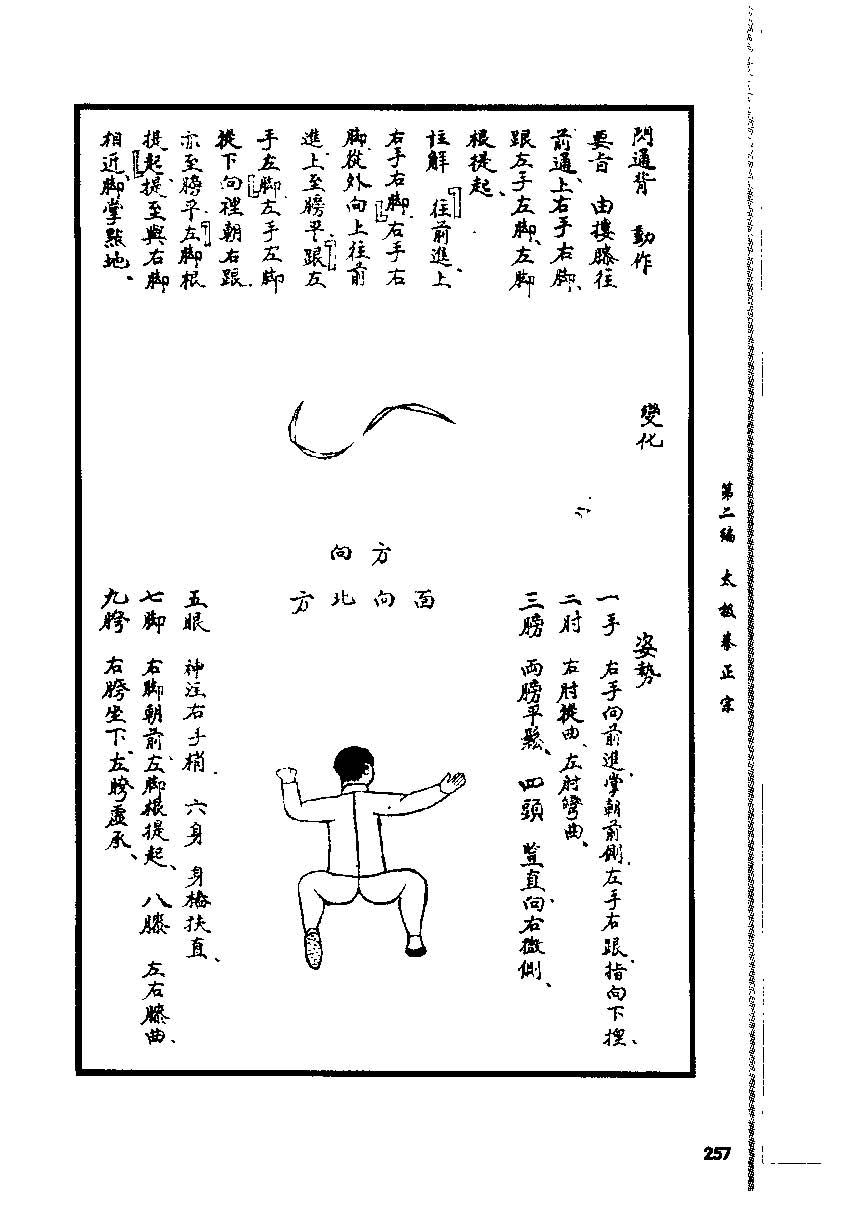 閃通背 動作
要旨 由摟膝往
前通、上右手右脚、
跟左手左脚、左脚
根提起、
註解 「往前進、上
右手右脚」右手右
脚、從外向上往前
進、上至膀平、「跟左
手左脚」左手左脚
從下向裡朝右跟、
亦至膀平、「左脚根
提起」提至與右脚
相近、脚掌點地。
變化
方向
面向北方
姿勢
一手 右手向前進、掌朝前側、左手右跟、指向下捏、
二肘 右肘從曲、左肘彎曲、
三膀 兩膀平鬆、四頭 豎直向右微側、
五眼 神注右手梢、六身 身樁扶直、
七脚 右脚朝前、左脚根提起、八膝 左右膝曲、
九胯 右胯坐下、左胯虛承、
第二編 太极拳正宗
257